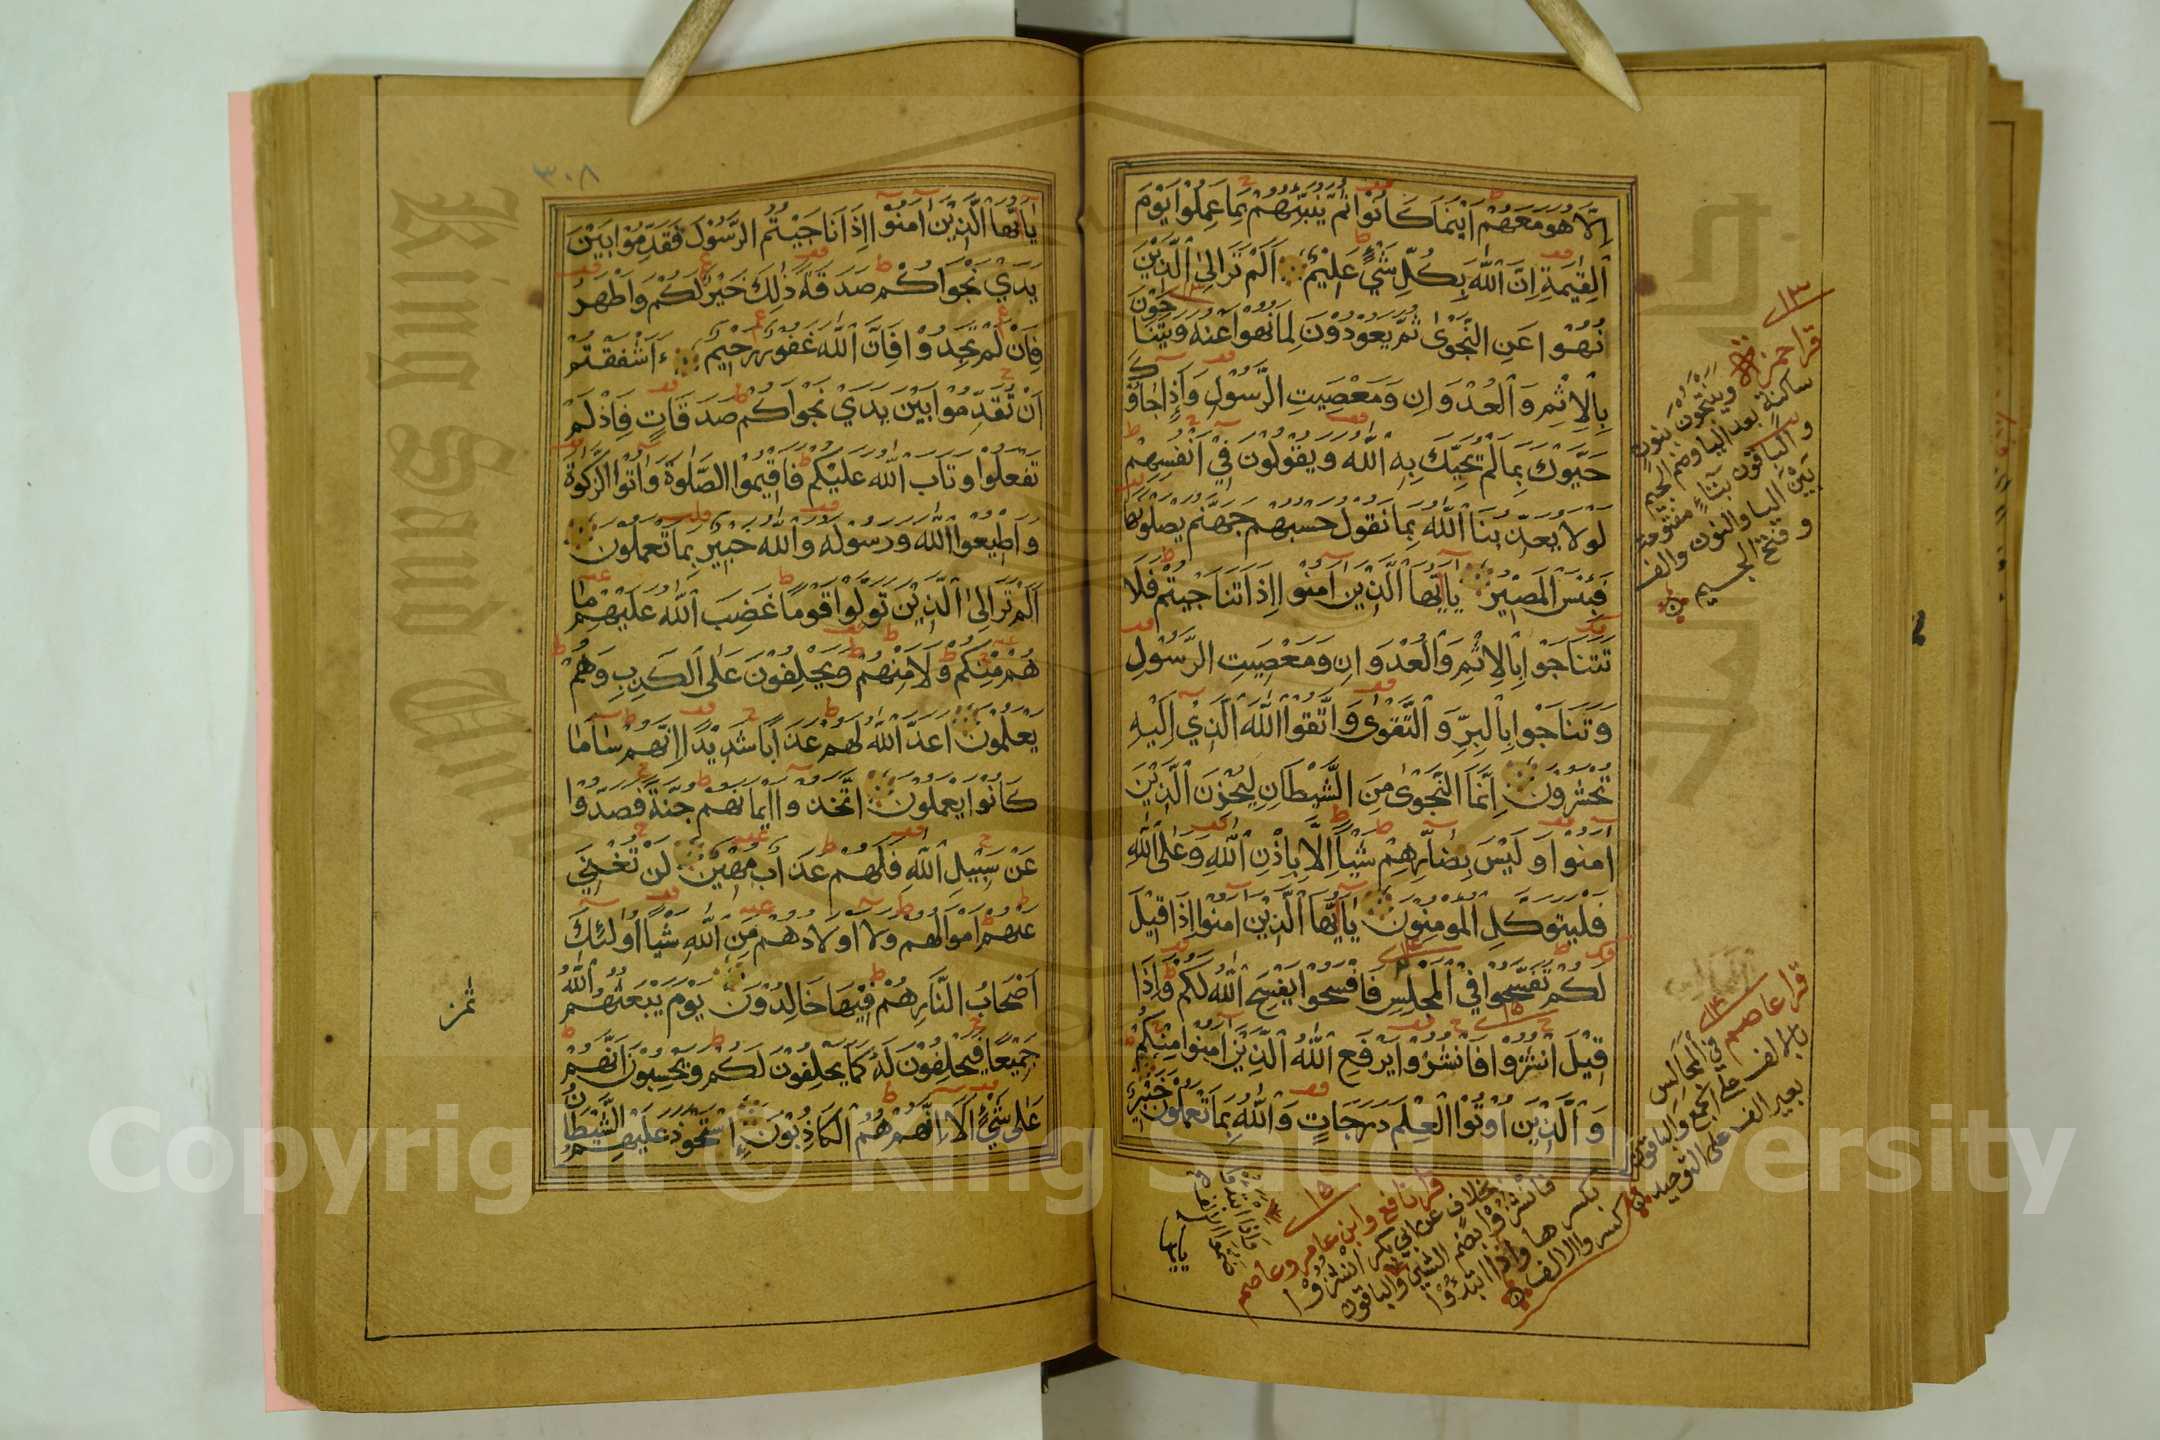 اِلَّا هُوَ مَعَهُمْ اَيْنَمَا كَانُوْا ثُمَّ يُنَبِّئُهُمْ بِمَا عَمِلُوْا يَوْمَ
الْقِيٰمَةِ اِنَّ اللّٰهَ بِكُلِّ شَيْءٍ عَلِيْمٌ اَلَمْ تَرَ اِلَى الَّذِيْنَ
نُهُوْا عَنِ النَّجْوٰى ثُمَّ يَعُوْدُوْنَ لِمَا نُهُوْا عَنْهُ وَيَتَنَاجَوْنَ
بِالْاِثْمِ وَالْعُدْوَانِ وَمَعْصِيَتِ الرَّسُوْلِ وَاِذَا جَاؤُكَ
حَيَّوْكَ بِمَا لَمْ يُحَيِّكَ بِهِ اللّٰهُ وَيَقُوْلُوْنَ فِيْ اَنْفُسِهِمْ
لَوْلَا يُعَذِّبُنَا اللّٰهُ بِمَا نَقُوْلُ حَسْبُهُمْ جَهَنَّمُ يَصْلَوْنَهَا
فَبِئْسَ الْمَصِيْرُ يٰاَيُّهَا الَّذِيْنَ اٰمَنُوْا اِذَا تَنَاجَيْتُمْ فَلَا
تَتَنَاجَوْا بِالْاِثْمِ وَالْعُدْوَانِ وَمَعْصِيَتِ الرَّسُوْلِ
وَتَنَاجَوْا بِالْبِرِّ وَالتَّقْوٰى وَاتَّقُوا اللّٰهَ الَّذِيْ اِلَيْهِ
تُحْشَرُوْنَ اِنَّمَا النَّجْوٰى مِنَ الشَّيْطَانِ لِيَحْزُنَ الَّذِيْنَ
اٰمَنُوْا وَلَيْسَ بِضَارِّهِمْ شَيْئًا اِلَّا بِاِذْنِ اللّٰهِ وَعَلَى اللّٰهِ
فَلْيَتَوَكَّلِ الْمُؤْمِنُوْنَ يٰاَيُّهَا الَّذِيْنَ اٰمَنُوْا اِذَا قِيْلَ
لَكُمْ تَفَسَّحُوْا فِي الْمَجٰلِسِ فَافْسَحُوْا يَفْسَحِ اللّٰهُ لَكُمْ وَاِذَا
قِيْلَ انْشُزُوْا فَانْشُزُوْا يَرْفَعِ اللّٰهُ الَّذِيْنَ اٰمَنُوْا مِنْكُمْ
وَالَّذِيْنَ اُوْتُوا الْعِلْمَ دَرَجَاتٍ وَاللّٰهُ بِمَا تَعْمَلُوْنَ خَبِيْرٌ
١٣
قرا حمزة وينتجون بنون
ساكنة بعد اليا وضم الجيم
والباقون بتاء مفتوحة
بين اليا والنون والف
وفتح الجيم
١٤
قرا عاصم في المجالس
بالالف على الجمع والباقون
بغير الف على التوحيد
١٥
قرا نافع وابن عامر وعاصم
بخلاف عن ابي بكر انشزوا
فانشزوا بضم الشين والباقون
بكسرها واذا ابتدؤا
كسروا الالف
ياايها
٣٠٨
يٰاَيُّهَا الَّذِيْنَ اٰمَنُوْا اِذَا نَاجَيْتُمُ الرَّسُوْلَ فَقَدِّمُوْا بَيْنَ
يَدَيْ نَجْوَاكُمْ صَدَقَةً ذٰلِكَ خَيْرٌ لَكُمْ وَاَطْهَرُ
فَاِنْ لَمْ تَجِدُوْا فَاِنَّ اللّٰهَ غَفُوْرٌ رَحِيْمٌ ءَاَشْفَقْتُمْ
اَنْ تُقَدِّمُوْا بَيْنَ يَدَيْ نَجْوَاكُمْ صَدَقَاتٍ فَاِذْ لَمْ
تَفْعَلُوْا وَتَابَ اللّٰهُ عَلَيْكُمْ فَاَقِيْمُوا الصَّلٰوةَ وَاٰتُوا الزَّكٰوةَ
وَاَطِيْعُوا اللّٰهَ وَرَسُوْلَهُ وَاللّٰهُ خَبِيْرٌ بِمَا تَعْمَلُوْنَ
اَلَمْ تَرَ اِلَى الَّذِيْنَ تَوَلَّوْا قَوْمًا غَضِبَ اللّٰهُ عَلَيْهِمْ مَا
هُمْ مِنْكُمْ وَلَا مِنْهُمْ وَيَحْلِفُوْنَ عَلَى الْكَذِبِ وَهُمْ
يَعْلَمُوْنَ اَعَدَّ اللّٰهُ لَهُمْ عَذَابًا شَدِيْدًا اِنَّهُمْ سَاءَ مَا
كَانُوْا يَعْمَلُوْنَ اتَّخَذُوا اَيْمَانَهُمْ جُنَّةً فَصَدُّوْا
عَنْ سَبِيْلِ اللّٰهِ فَلَهُمْ عَذَابٌ مُهِيْنٌ لَنْ تُغْنِيَ
عَنْهُمْ اَمْوَالُهُمْ وَلَا اَوْلَادُهُمْ مِنَ اللّٰهِ شَيْئًا اُولٰئِكَ
اَصْحَابُ النَّارِ هُمْ فِيْهَا خَالِدُوْنَ يَوْمَ يَبْعَثُهُمُ اللّٰهُ
جَمِيْعًا فَيَحْلِفُوْنَ لَهُ كَمَا يَحْلِفُوْنَ لَكُمْ وَيَحْسَبُوْنَ اَنَّهُمْ
عَلٰى شَيْءٍ اَلَا اِنَّهُمْ هُمُ الْكَاذِبُوْنَ اسْتَحْوَذَ عَلَيْهِمُ الشَّيْطَانُ
ثمن
King Saud University
Copyright © King Saud University